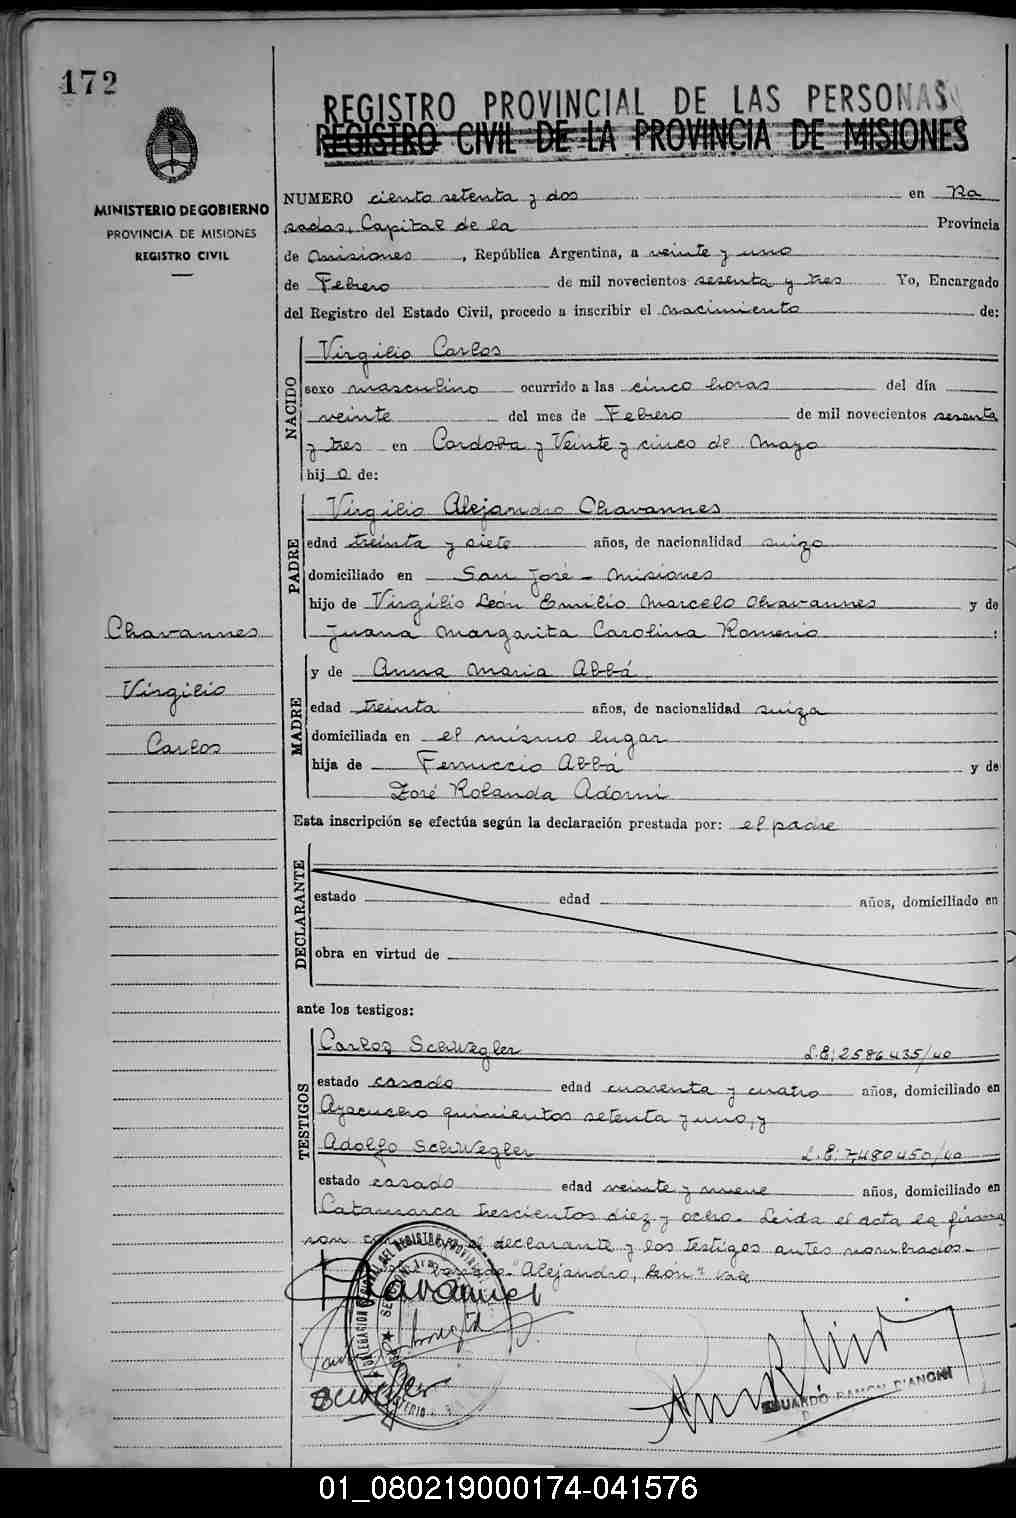 172
REGISTRO PROVINCIAL DE LAS PERSONAS
REGISTRO CIVIL DE LA PROVINCIA DE MISIONES
MINISTERIO DE GOBIERNO
PROVINCIA DE MISIONES
REGISTRO CIVIL
NUMERO ciento setenta y dos en Po
sadas, Capital de la Provincia
de Misiones, República Argentina, a veinte y uno
de Febrero de mil novecientos sesenta y tres Yo, Encargado
del Registro del Estado Civil, procedo a inscribir el nacimiento de:
NACIDO
Virgilio Carlos
sexo masculino ocurrido a las cinco horas del día
veinte del mes de Febrero de mil novecientos sesenta
y tres en Cordoba y Veinte y cinco de Mayo
hijo de:
PADRE
Virgilio Alejandro Chavannes
edad treinta y siete años, de nacionalidad suizo
domiciliado en San José - Misiones
hijo de Virgilio León Emilio Marcelo Chavannes y de
Juana Margarita Carolina Romerio :
Chavannes
Virgilio
Carlos
MADRE
y de Anna Maria Abbá
edad treinta años, de nacionalidad suiza
domiciliada en el mismo lugar
hija de Ferruccio Abbá y de
Zoré Rolanda Adorni
Esta inscripción se efectúa según la declaración prestada por: el padre
DECLARANTE
estado edad años, domiciliado en
obra en virtud de
ante los testigos:
TESTIGOS
Carlos Schwegler L.E: 2586435/40
estado casado edad cuarenta y cuatro años, domiciliado en
Ayacucho quinientos setenta y uno, y
Adolfo Schwegler L.E: 7480450/40
estado casado edad veinte y nueve años, domiciliado en
Catamarca trescientos diez y ocho. Leida el acta la firma
ron el declarante y los testigos antes nombrados.
"Alejandro, León" Vale
EDUARDO RAMON D'ANCHI
01_080219000174-041576